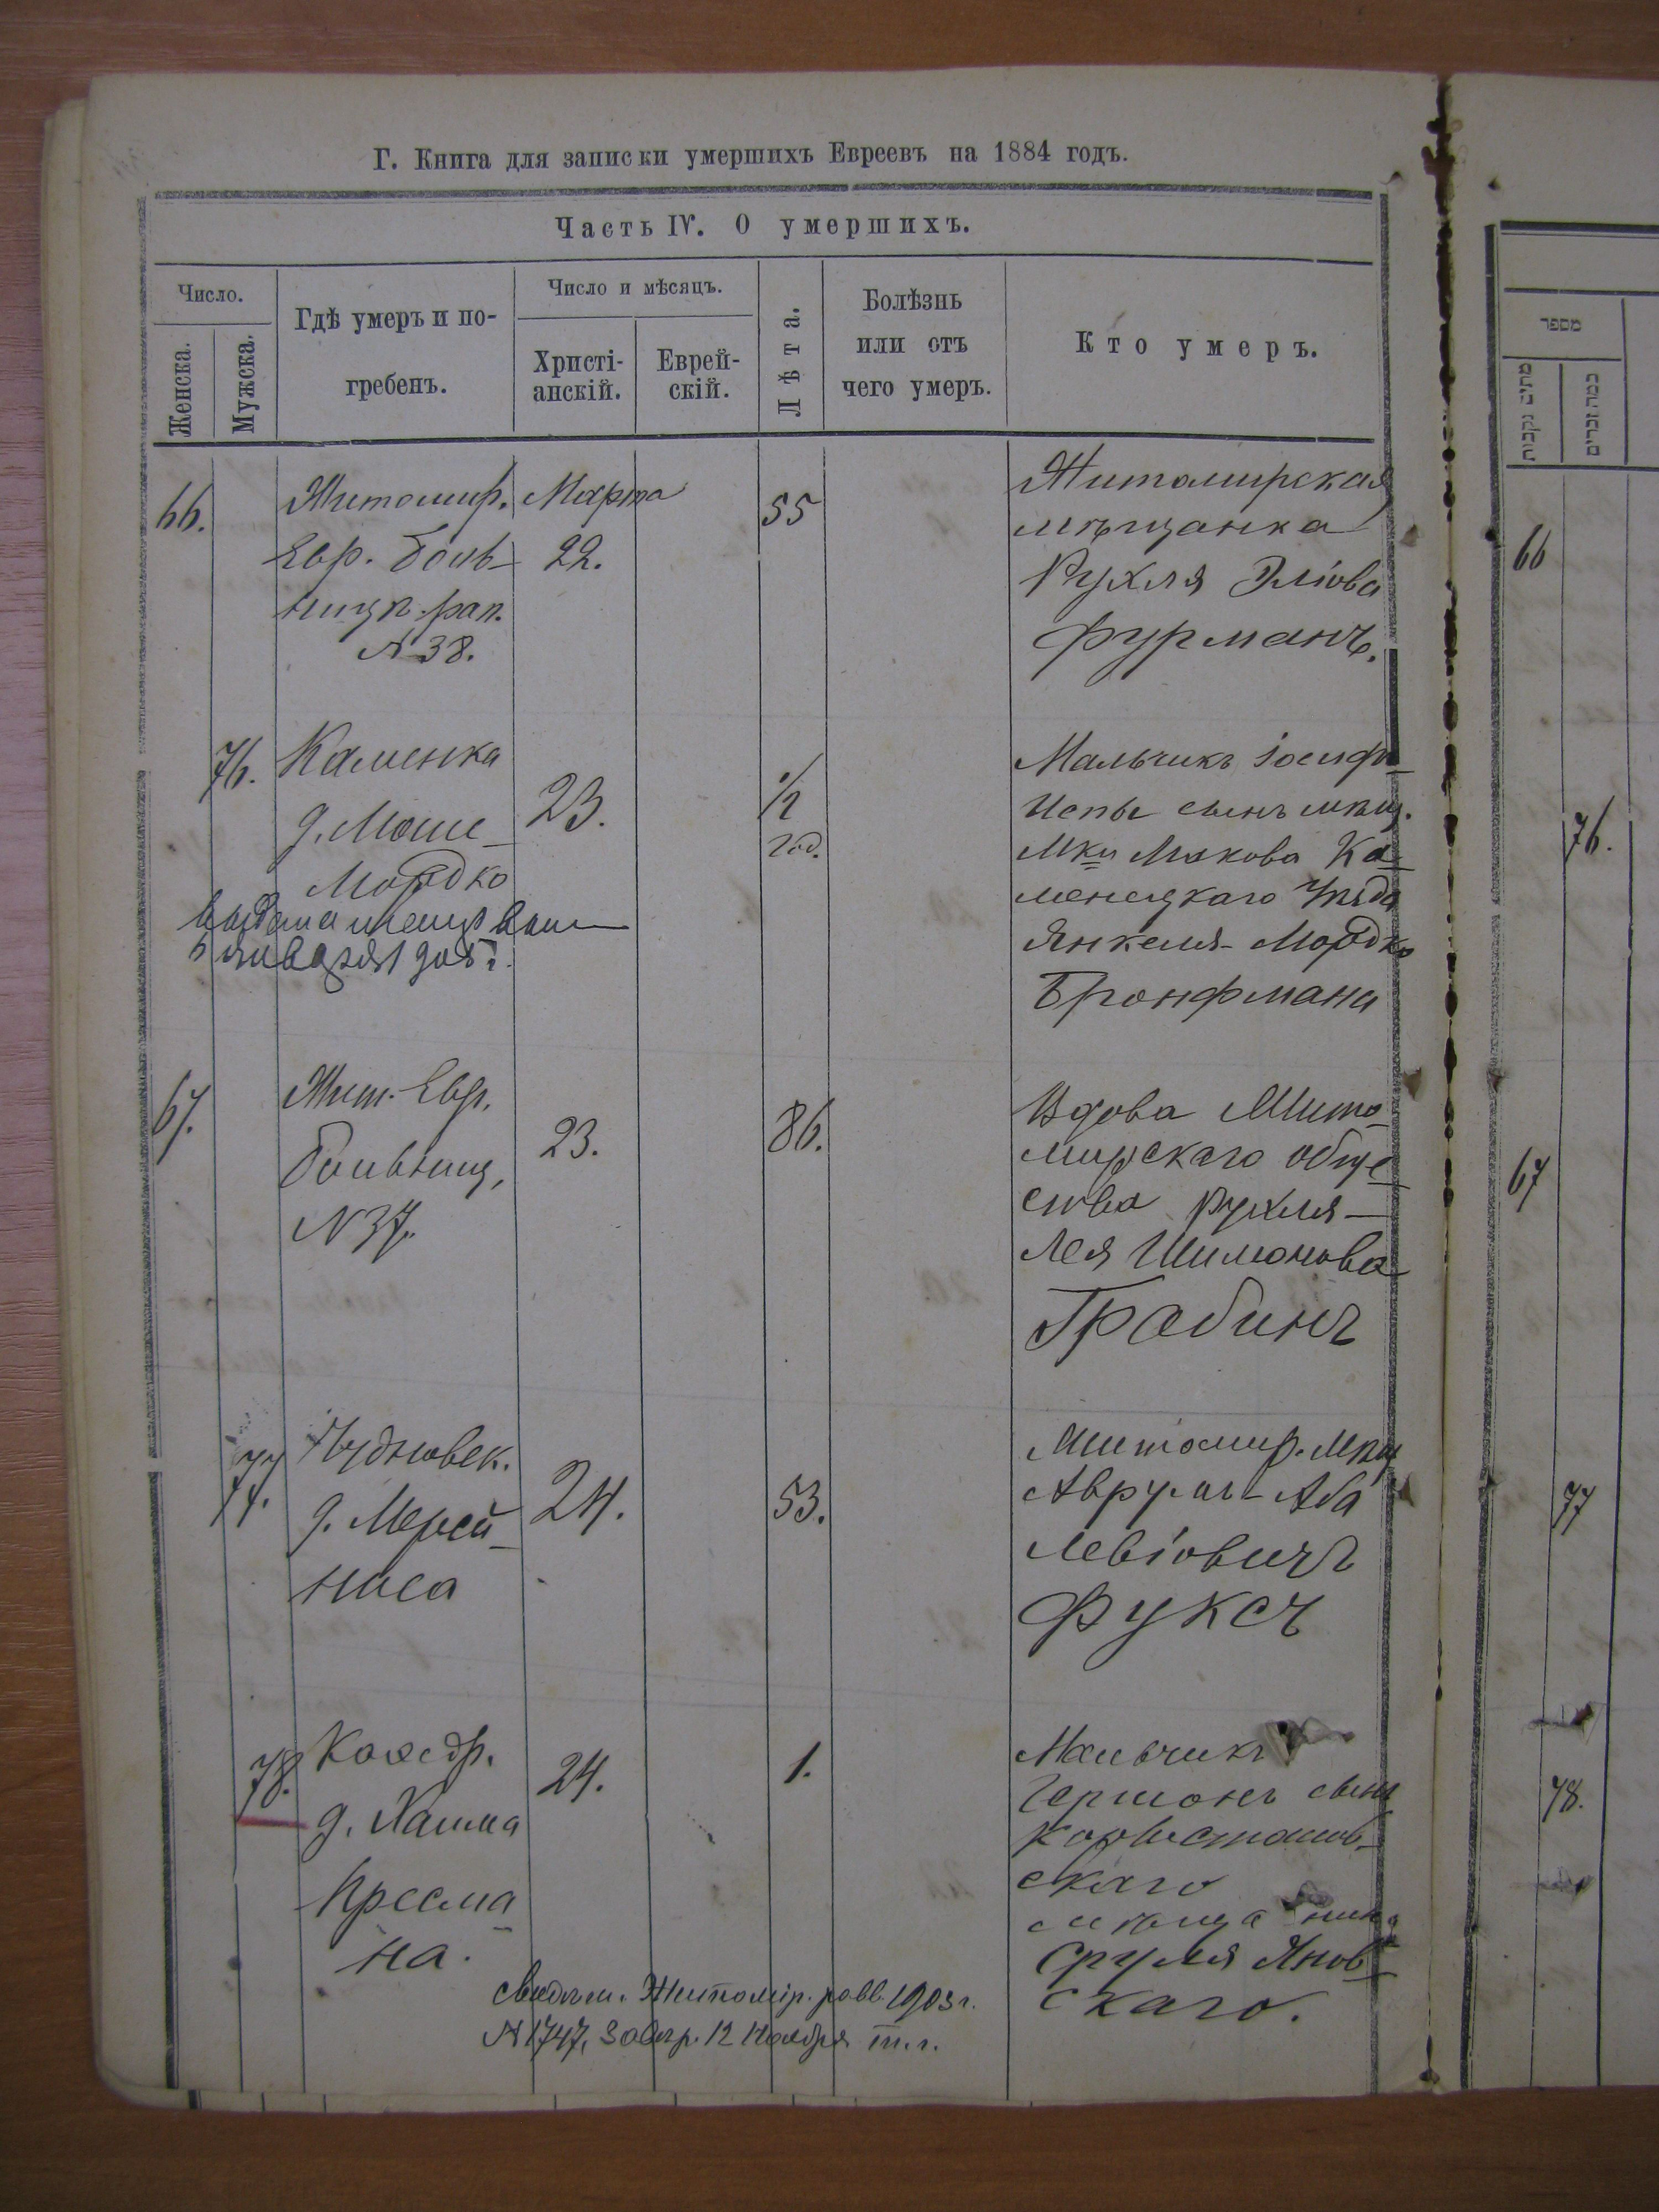 Г. Книга для записки умершихъ Евреевъ на 1884 годъ.
Часть IV. О умершихъ.
Число.
Женска.
Мужска.
Гдѣ умеръ и по-
гребенъ.
Число и мѣсяцъ.
Христі-
анскій.
Еврей-
скій.
Лѣта.
Болѣзнь
или отъ
чего умеръ.
Кто умеръ.
66.
Житомир.
Евр. Боль-
ницы рап.
№ 38.
Марта
22.
55
Житомирская
мѣщанка
Рухля Эліова
Фурманъ.
76.
Каменка
д. Моше-
Мордко
23.
1/2
год.
Мальчикъ Іосифъ-
сынъ мѣщ.
Ка-
менецкаго
Янкеля-Мордко
Бронфмана
67.
Жит. Евр.
Больниц,
№ 37.
23.
86.
Вдова Жито-
мирскаго обще-
ства Рухля-
Лея Шимонова
Грабинъ
77.
Чудновск.
д. Мерей-
носа
24.
53.
Житомир. мѣщ
Аврумъ-Аба
Левіовичъ
Фуксъ
78.
Каѳедр.
д. Хаима
Кресма-
на.
24.
1.
Мальчикъ
Гершонъ сынъ
скаго
мѣщанина
Сруля Янов-
скаго.
Житомір. равв. 1903 г.
№ 1747, 12 Ноября т. г.
מספר
מתים נקבות
כמה זכרים
66
76.
67
77
78.